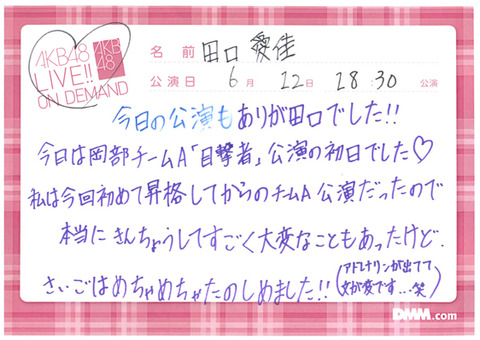 AKB48
LIVE!!
ON DEMAND
AKB
48
名前 田口 愛佳
公演日 6月 12日 18:30 公演
今日の公演もありが田口でした!!
今日は岡部チームA「目撃者」公演の初日でした♡
私は今回初めて昇格してからのチームA公演だったので
本当にきんちょうしてすごく大変なこともあったけど、
さいごはめちゃめちゃたのしめました!!
(アドレナリンが出てて
文が変です...笑)
DMM.com